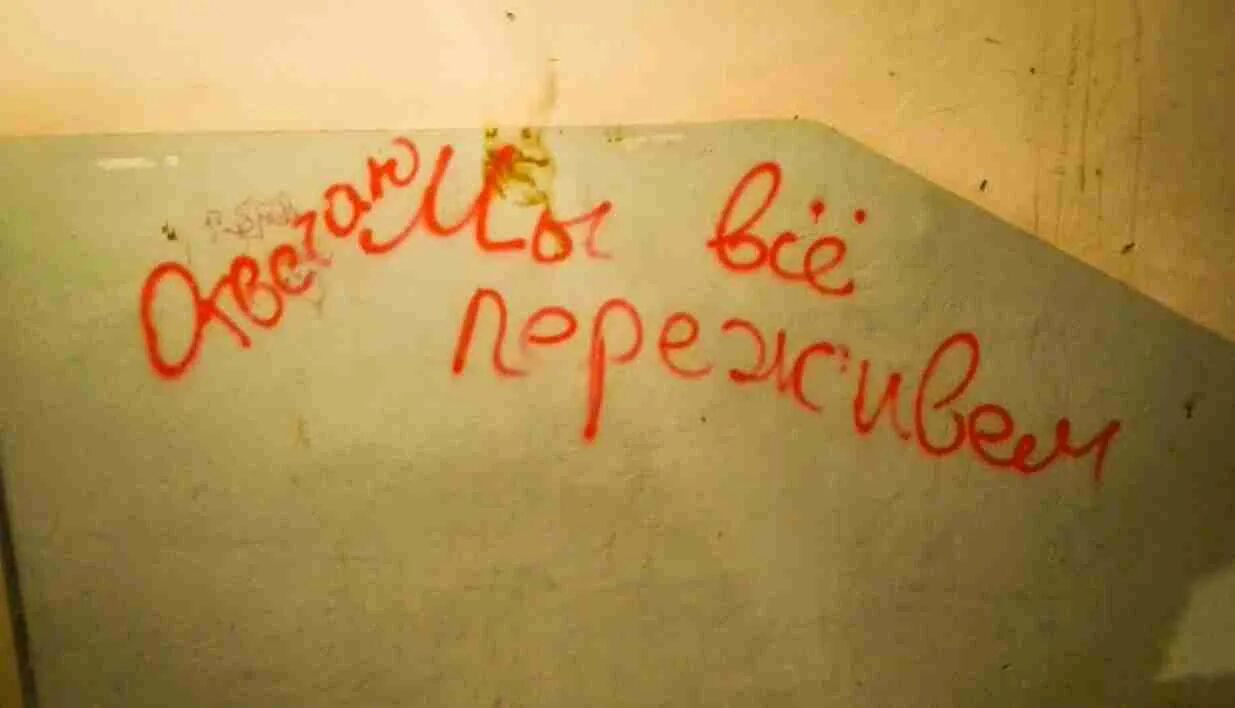 Отвечаю Мы всё
переживем